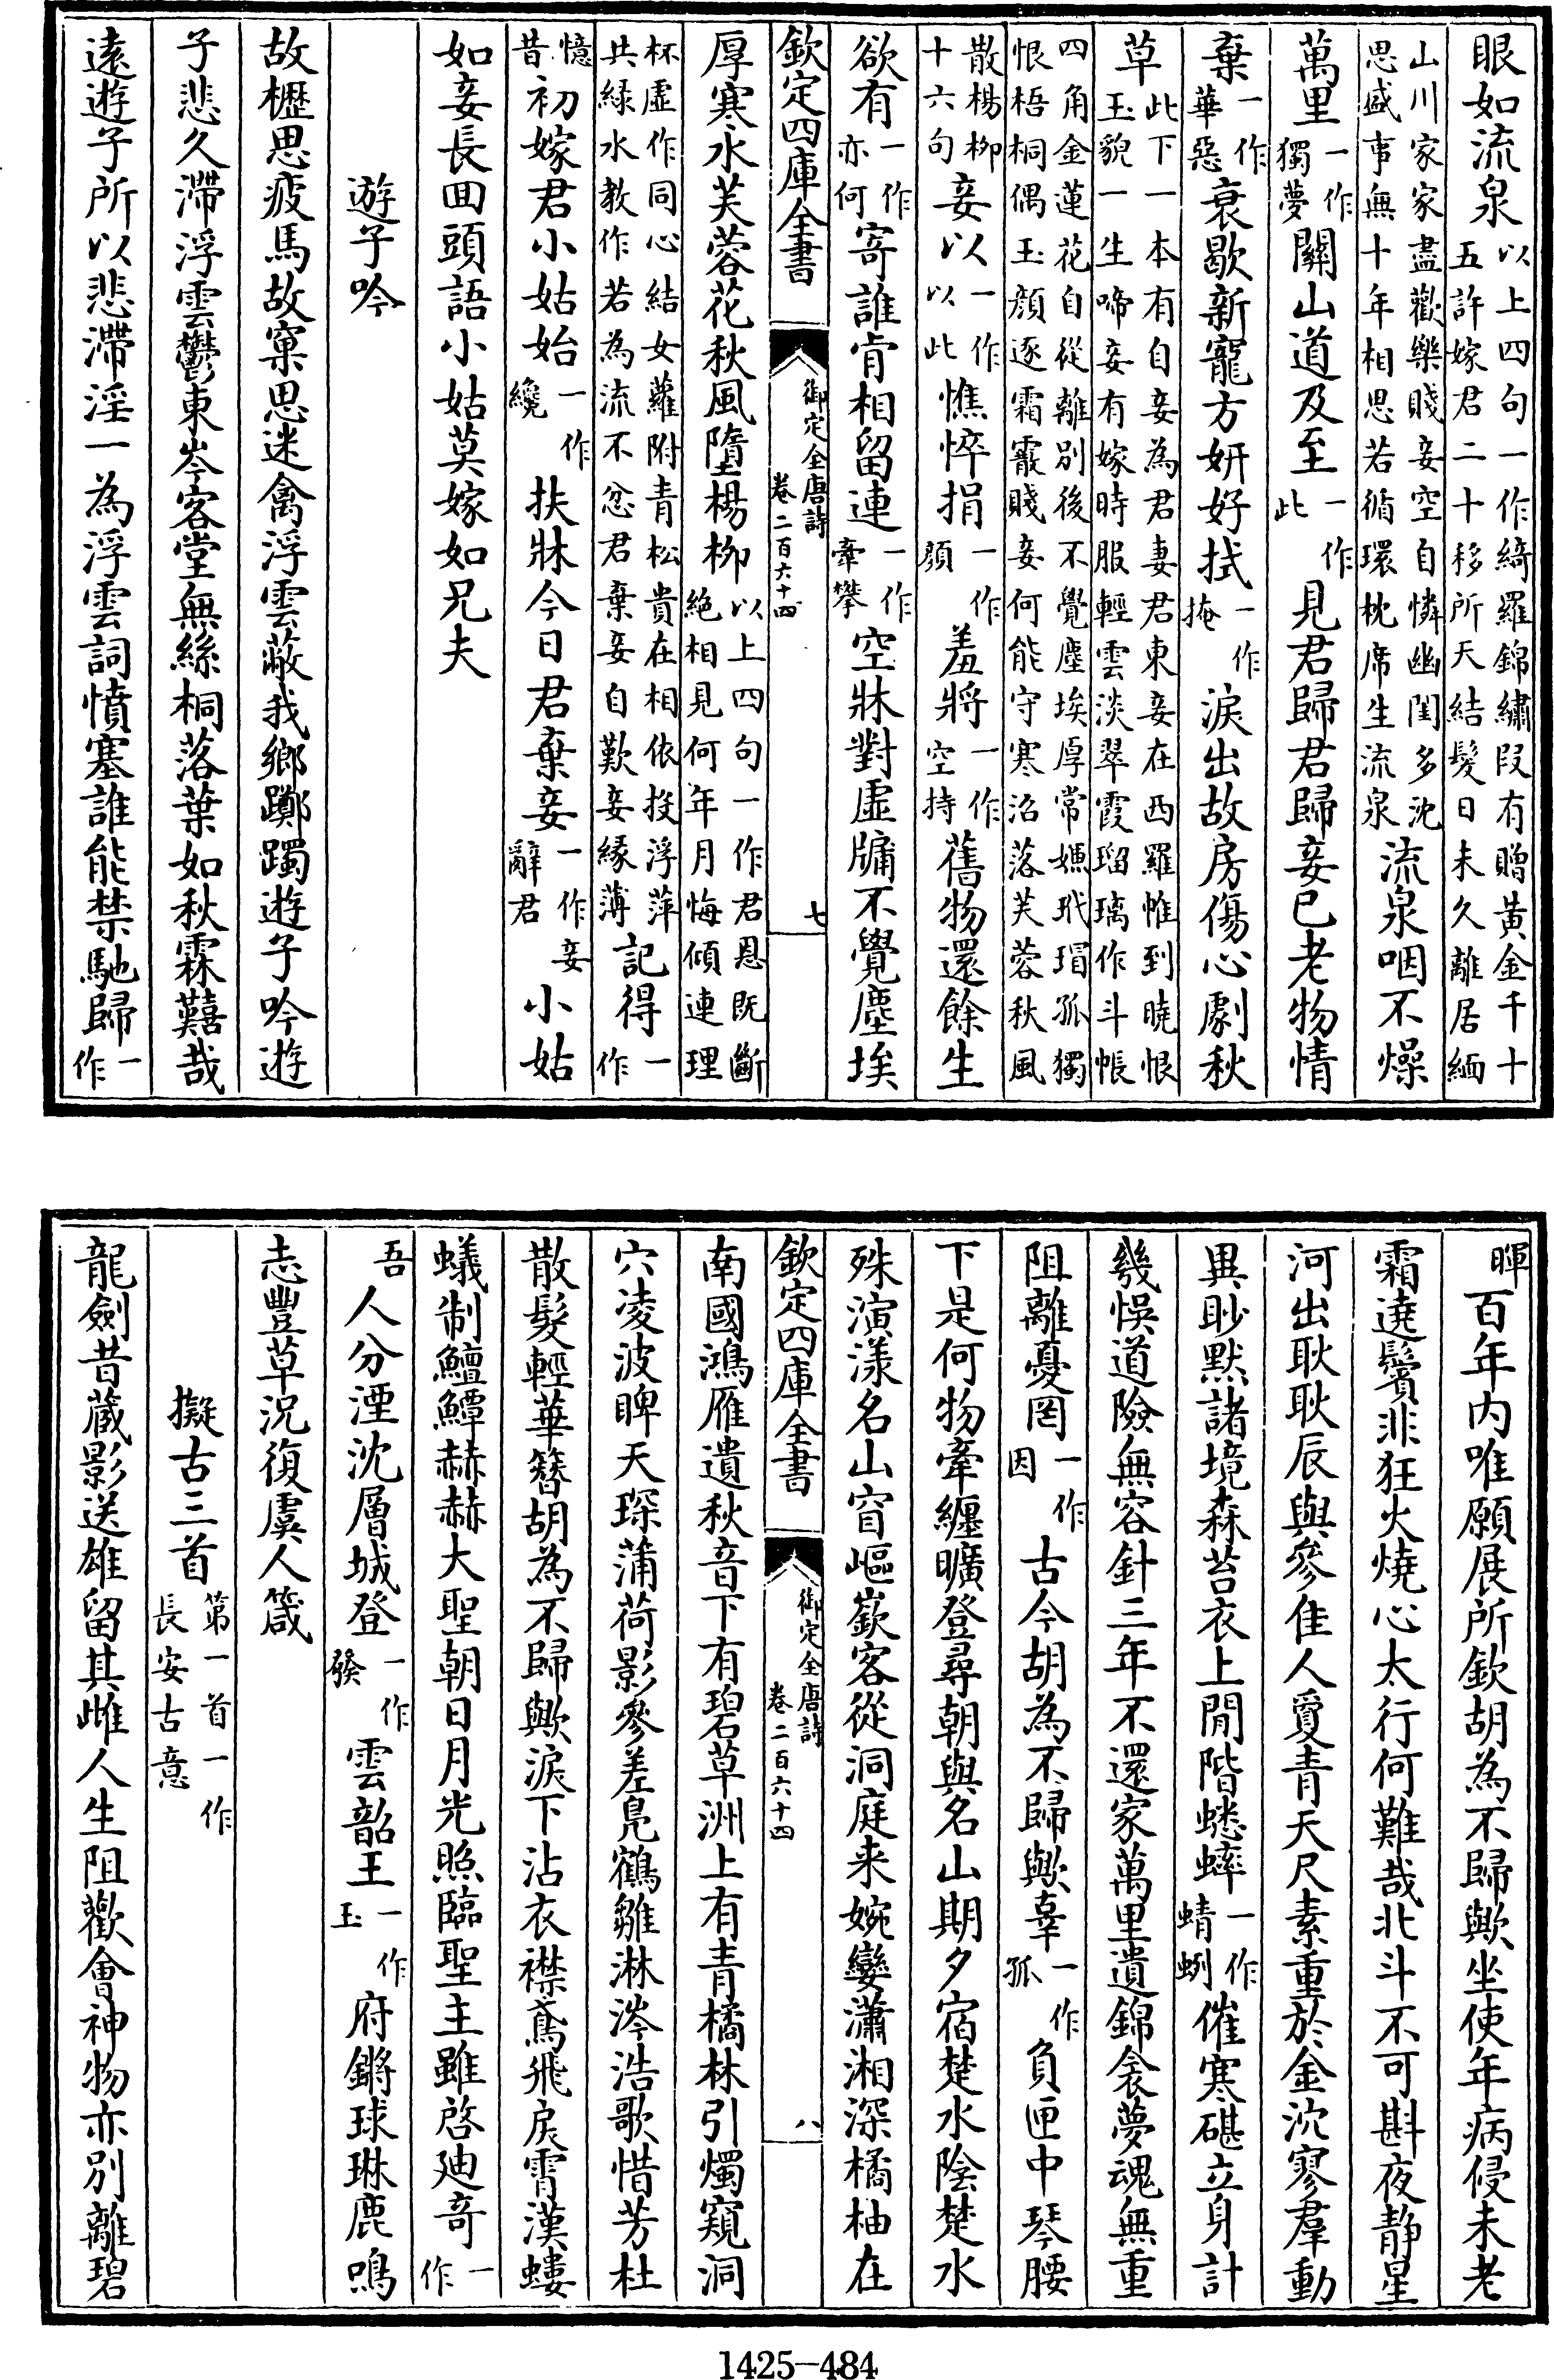 眼如流泉以上四句一作綺羅錦繡段有贈黃金千十五許嫁君二十移所天結髮日未久離居緬
山川家家盡歡樂賤妾空自憐幽閨多沈思盛事無十年相思若循環枕席生流泉流泉咽不燥
萬里一作獨夢關山道及至一作此見君歸君歸妾已老物情
棄一作華惡衰歇新寵方妍好拭一作掩淚出故房傷心劇秋
草此下一本有自妾為君妻君東妾在西羅帷到曉恨玉貌一生啼妾有嫁時服輕雲淡翠霞瑠璃作斗帳
四角金蓮花自從離別後不覺塵埃厚常嫌玳瑁孤獨恨梧桐偶玉顏逐霜霰賤妾何能守寒沼落芙蓉秋風
散楊柳十六句妾以一作以此憔悴捐一作顏羞將一作空持舊物還餘生
欲有一作亦何寄誰肯相留連一作牽攀空牀對虛牖不覺塵埃
欽定四庫全書
御定全唐詩
卷二百六十四
七
厚寒水芙蓉花秋風墮楊柳以上四句一作君恩既斷絕相見何年月悔傾連理
杯虛作同心結女蘿附青松貴在相依投浮萍共綠水教作若為流不忿君棄妾自歎妾緣薄記得一作
憶昔初嫁君小姑始一作纔扶牀今日君棄妾一作妾辭君小姑
如妾長回頭語小姑莫嫁如兄夫
遊子吟
故櫪思疲馬故窠思迷禽浮雲蔽我鄉躑躅遊子吟遊
子悲久滯浮雲鬱東岑客堂無絲桐落葉如秋霖囏哉
遠遊子所以悲滯淫一為浮雲詞憤塞誰能禁馳歸一作
暉百年內唯願展所欽胡為不歸歟坐使年病侵未老
霜遶鬢非狂火燒心太行何難哉北斗不可斟夜靜星
河出耿耿辰與參佳人夐青天尺素重於金沈寥羣動
異眇默諸境森苔衣上閒階蟋蟀一作蜻蛚催寒碪立身計
幾悞道險無容針三年不還家萬里遺錦衾夢魂無重
阻離憂罔一作因古今胡為不歸歟辜一作孤負匣中琴腰
下是何物牽纏曠登尋朝與名山期夕宿楚水陰楚水
殊演漾名山窅嶇嶔客從洞庭来婉孌瀟湘深橘柚在
欽定四庫全書
御定全唐詩
卷二百六十四
八
南國鴻雁遺秋音下有碧草洲上有青橘林引燭窺洞
穴凌波睥天琛蒲荷影參差鳧鶴雛淋涔浩歌惜芳杜
散髮輕華簪胡為不歸歟淚下沾衣襟鳶飛戾霄漢螻
蟻制鱣鱏赫赫大聖朝日月光照臨聖主雖啓迪奇一作
吾人分湮沈層城登一作發雲韶王一作玉府鏘球琳鹿鳴
志豐草況復虞人箴
擬古三首第一首一作長安古意
龍劍昔藏影送雄留其雌人生阻歡會神物亦別離碧
1425-484